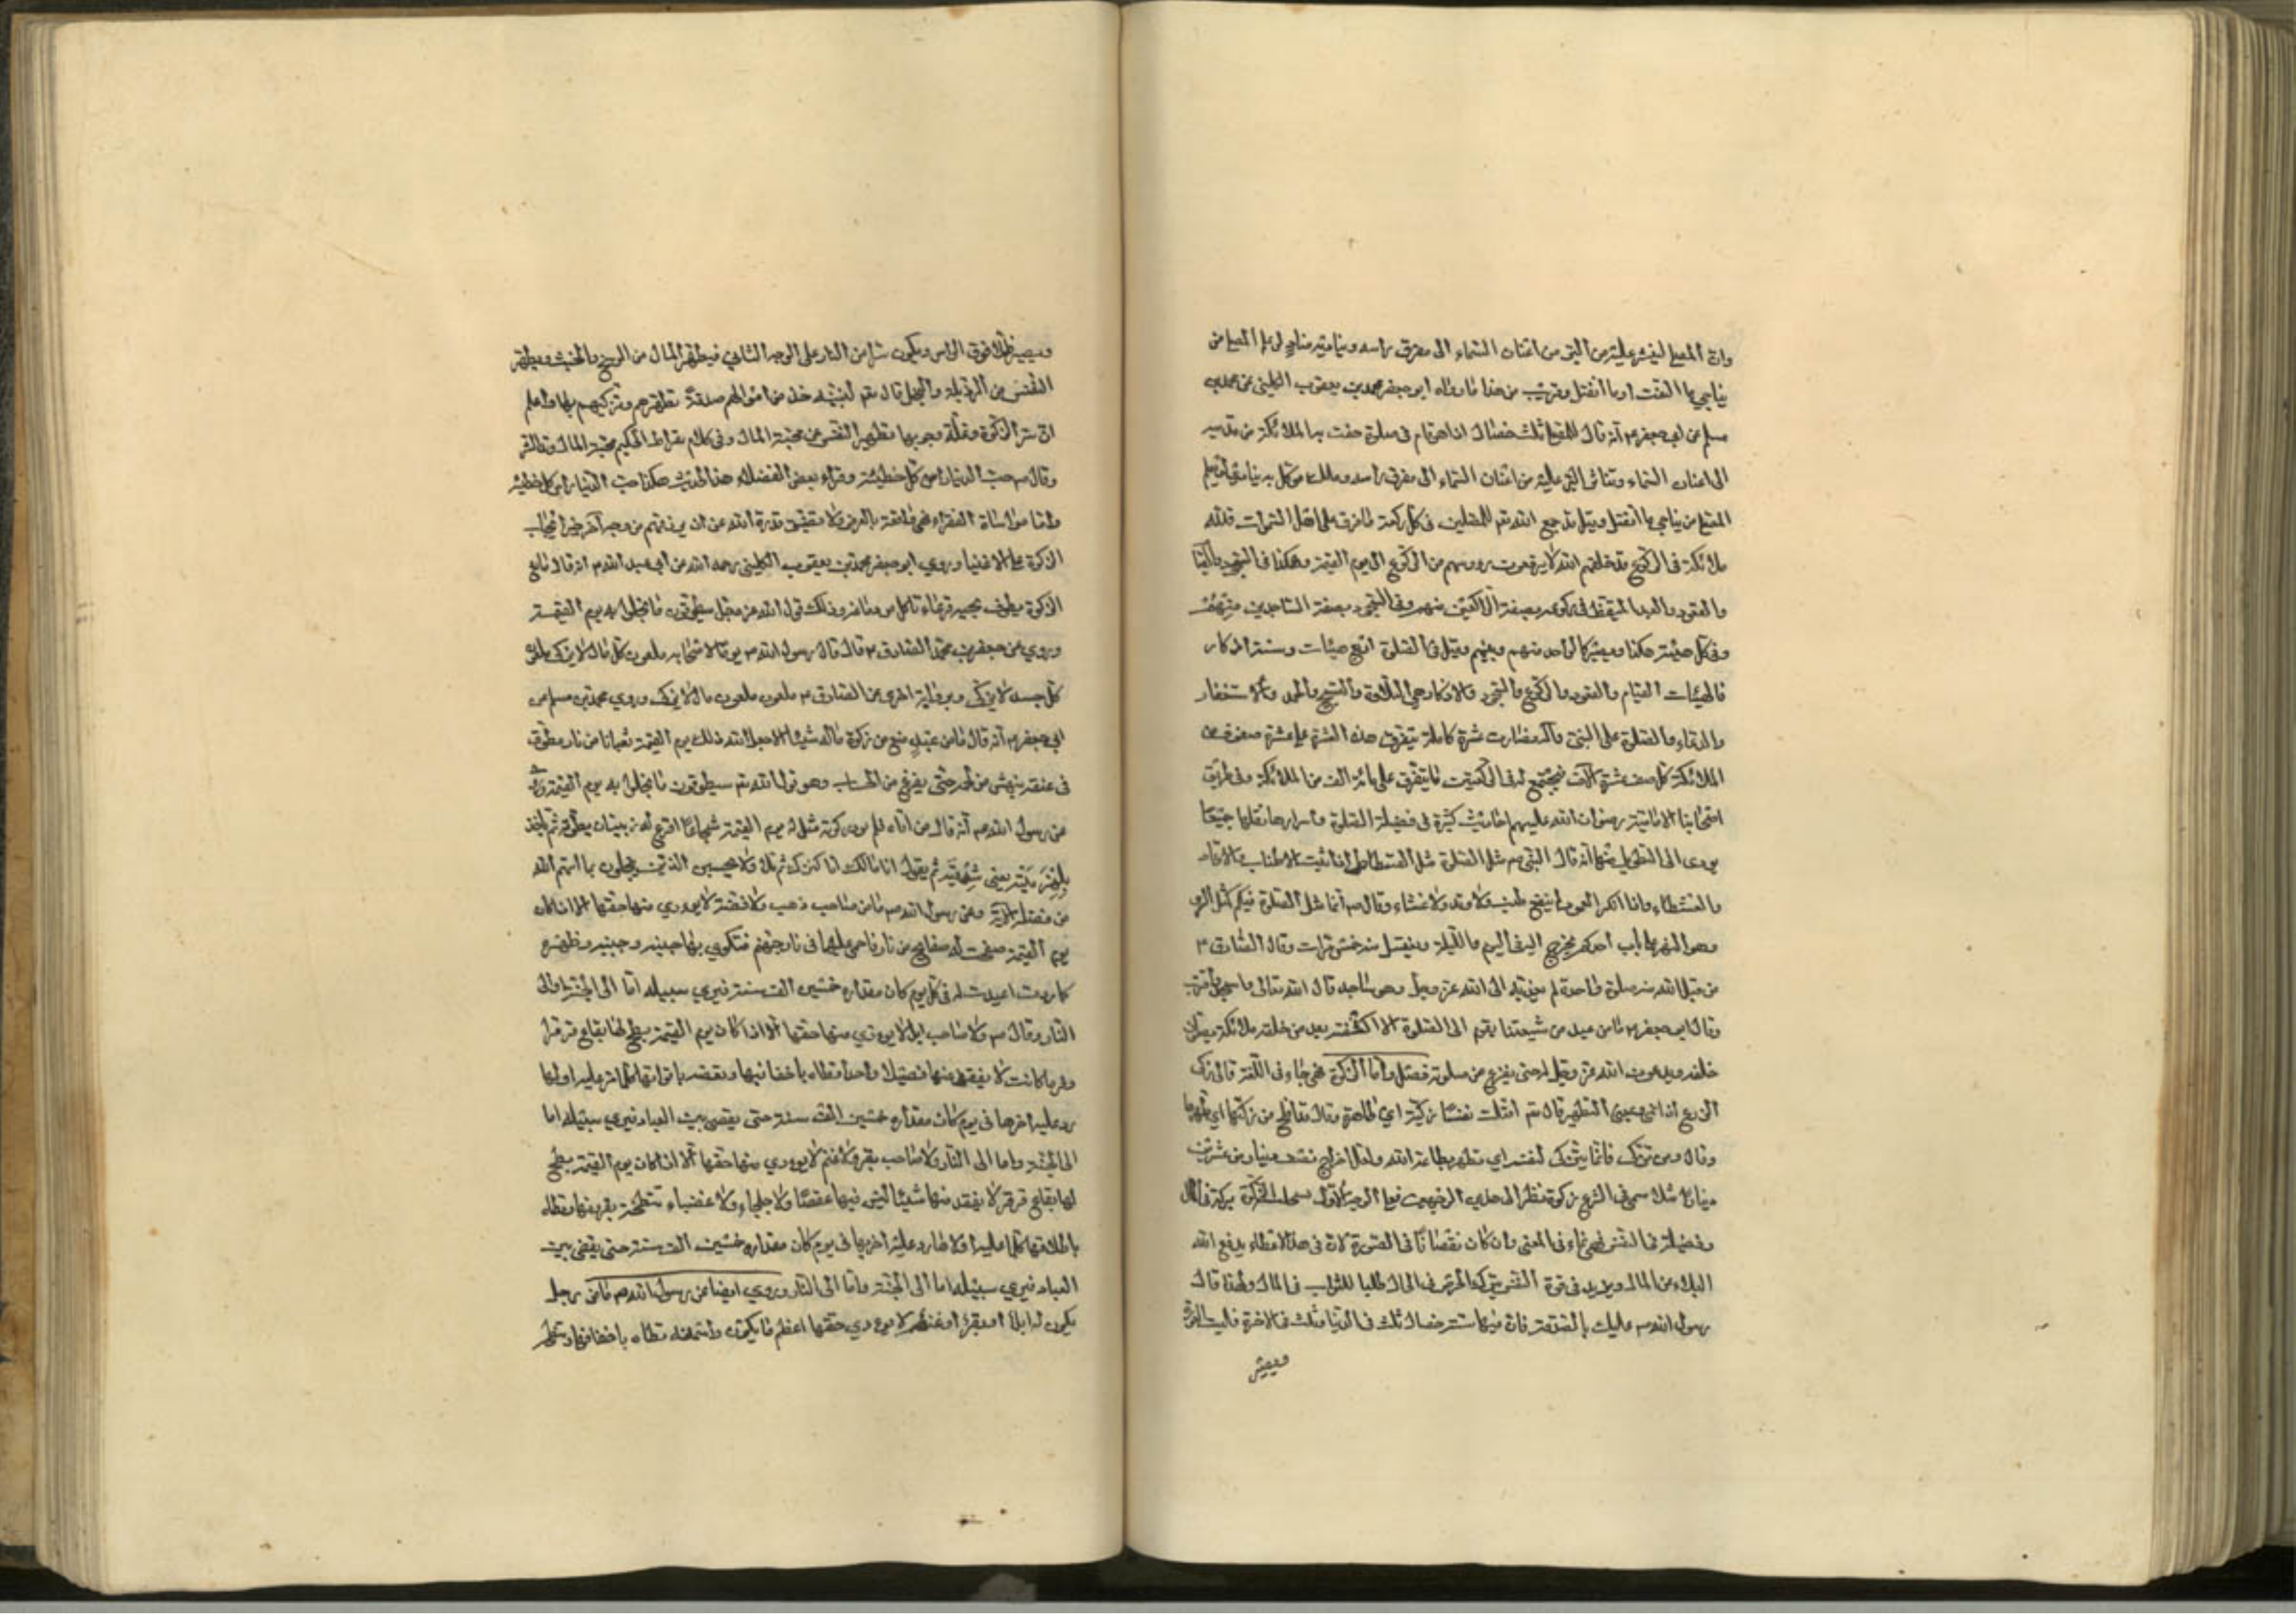 وان المصلي لينثر عليه من البر من اعنان السماء الى مفرق راسه ويناديه مناد لو علم المصلي من
يناجي ما التفت او ما انفتل وقريب من هذا ما رواه ابو جعفر محمد بن يعقوب الكليني عن محمد بن
مسلم عن ابي جعفر م انه قال للمصلي ثلث خصال اذا هو قام في صلوته حفت به الملائكة من قدميه
الى اعنان السماء ويتناثر البر عليه من اعنان السماء الى مفرق راسه وملك موكل به ينادي لو يعلم
المصلي من يناجي ما انفتل وقيل قد جمع الله تم للمصلين في كل ركعة ما فرق على اهل السموات فلله
ملائكة في الركوع قد خلقهم الله لا يرفعون رؤسهم من الركوع الى يوم القيمة وهكذا في السجود والقيام
والقعود في ركوعه بصفة الراكعين منهم وفي السجود بصفة الساجدين منهم
وفي كل هيئة هكذا ويصير كالواحد منهم وبينهم وقيل في الصلوة اربع هيئات وستة اذكار
فالهيئات القيام والقعود والركوع والسجود والاذكار هي التلاوة والتسبيح والحمد والاستغفار
والدعاء والصلوة على النبي وآله فصارت عشرة كاملة يتفرق هذه العشرة على عشرة صفوف من
الملائكة كل صف عشرة آلاف فيجتمع له في الركعتين ما يتفرق على مائة الف من الملائكة وفي طريق
اصحابنا الامامية رضوان الله عليهم احاديث كثيرة في فضيلة الصلوة واسرارها نقلها جميعا
يودى الى التطويل منها انه قال النبي ص مثل الصلوة مثل الفسطاط اذا ثبت الاطناب والاوتاد
والغشاء واذا انكسر العمود لم ينفع طنب ولا وتد ولا غشاء وقال ص انما مثل الصلوة فيكم كمثل السري
وهو النهر على باب احدكم يخرج اليه في اليوم والليلة ويغتسل منه خمس مرات وقال الصادق م
من قبل الله منه صلوة واحدة لم يعذبه الى الله عز وجل وهو ساجد قال الله تعالى واسجد واقترب
وقال ابو جعفر م ما من عبد من شيعتنا يقوم الى الصلوة الا اكتنفته بعدد من خالفه ملائكة يصلون
خلفه ويدعون الله عز وجل له حتى يفرغ من صلوته فصل واما الزكوة فهي جاء في اللغة قال زكى
الزرع اذا نمى وبمعنى التطهير قال تم اقتلت نفسا زكية اي طاهرة وقال قد افلح من زكيها اي طهرها
وقال ومن تزكى فانما يتزكى لنفسه اي تطهر بطاعة الله ولعل اخراج نصف دينار من عشرين
دينارا مثلا سمي في الشرع زكوة نظرا الى هذين الوجهين فعلى الوجه الاول
وفضيلة في النفس فهي نماء في المعنى وان كان نقصانا في الصورة لان في هذا الاعطاء يدفع الله
البلاء عن المال ويزيد في قوة النفس بتركه الحرص في المال طلبا للثواب في المال ولهذا قال
رسول الله ص عليك بالصدقة فان فيها ستة خصال ثلث في الدنيا وثلث في الاخرة
ويصير
ويصير ظلا فوق الراس ويكون سترا من النار على الوجه الثاني فيطهر المال من الوسخ والخبث ويطهر
النفس من الرذيلة والبخل قال تم لنبيه خذ من اموالهم صدقة تطهرهم وتزكيهم بها واعلم
ان سر الزكوة وعلة وجوبها تطهير النفس عن محبة المال وفي كلام سقراط الحكيم محبة المال
وقال ص حب الدنيا راس كل خطيئة وقراء بعض الفضلاء هذا الحديث هكذا حب الدنيا راس كل خطيئة
واما مواساة الفقراء فهي واقعة بالعرض ولا تضيق قدرة الله عن ان يرزقهم من وجه آخر غير ايجاب
الزكوة على الاغنياء وروي ابو جعفر محمد بن يعقوب الكليني رحمه الله عن ابي عبد الله م انه قال مانع
الزكوة يطوف بحية قرعاء تاكل من دماغه وذلك قول الله عز وجل سيطوقون ما بخلوا به يوم القيمة
وروي عن جعفر بن محمد الصادق م قال قال رسول الله ص يوما لاصحابه ملعون كل مال لا يزكى ملعون
كل جسد لا يزكى وبرواية اخرى عن الصادق م ملعون ملعون مال لا يزكى وروي محمد بن مسلم عن
ابي جعفر م انه قال ما من عبد منع من زكوة ماله شيئا الا جعل الله ذلك يوم القيمة ثعبانا من نار مطوق
في عنقه ينهش من لحمه حتى يفرغ من الحساب وهو قول الله تم سيطوقون ما بخلوا به يوم القيمة
عن رسول الله ص انه قال من اتاه فلم يود زكوته مثل له يوم القيمة شجاعا اقرع له زبيبتان يطوقه ثم ياخذ
بلهزميه يعني شدقيه ثم يقول انا مالك انا كنزك ثم تلا ولا يحسبن الذين يبخلون بما اتيهم الله
من فضله الآية وعن رسول الله ص ما من صاحب ذهب ولا فضة لا يودي منها حقها الا اذا كان
يوم القيمة صفحت له صفايح من نار فاحمي عليها في نار جهنم فتكوي بها جبينه وجنبيه وظهره
كلما ردت اعيدت له في كل يوم كان مقداره خمسين الف سنة فيرى سبيله اما الى الجنة او الى
النار وقال ص ولا صاحب ابل لا يودي منها حقها الا اذا كان يوم القيمة بطح لها بقاع قرقر
اوفر ما كانت لا يفقد منها فصيلا واحدا تطاه باخفافها وتعضه بافواهها كلما مر عليه اولها
رد عليه اخرها في يوم كان مقداره خمسين الف سنة حتى يقضي بين العباد فيرى سبيله اما
الى الجنة واما الى النار ولا صاحب بقر ولا غنم لا يودي منها حقها الا اذا كان يوم القيمة بطح
لها بقاع قرقر لا يفقد منها شيئا ليس فيها عقصاء ولا جلحاء ولا عضباء تنطحه بقرونها وتطاه
باظلافها كلما مر عليه اولاها رد عليه اخريها في يوم كان مقداره خمسين الف سنة حتى يقضي بين
العباد فيرى سبيله اما الى الجنة واما الى النار وروي ايضا عن رسول الله ص ما من رجل
يكون له ابل او بقر او غنم لا يودي حقها اعظم ما يكون واسمنه تطاه باخفافها